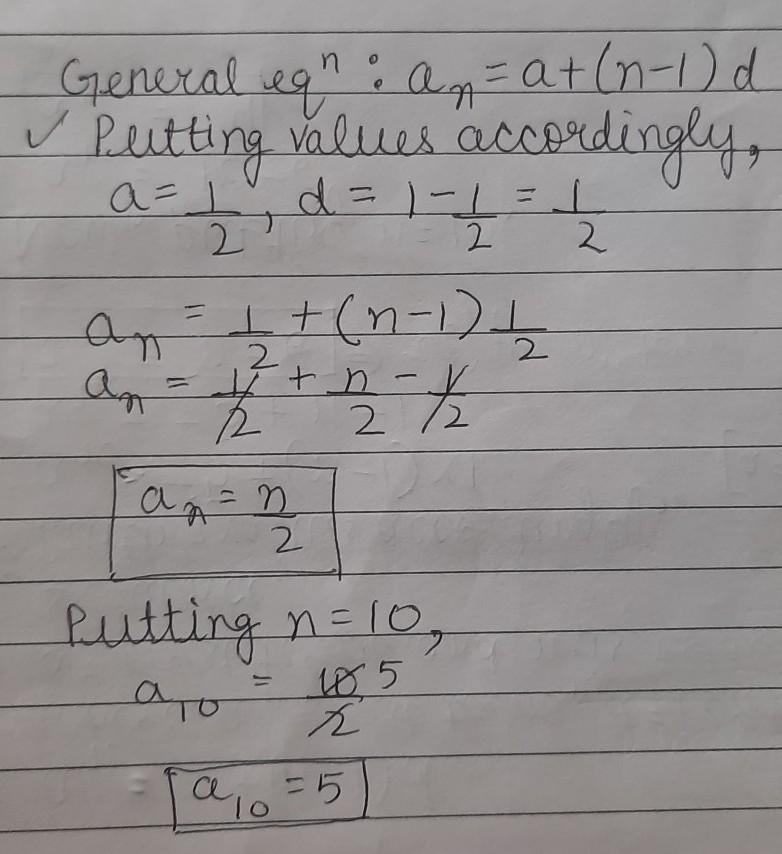 General eqⁿ : aₙ = a + (n-1) d
✓ Putting values accordingly,
a = 1/2, d = 1 - 1/2 = 1/2
aₙ = 1/2 + (n-1) 1/2
aₙ = 1/2 + n/2 - 1/2
aₙ = n/2
Putting n = 10,
a₁₀ = 10/2 5
= a₁₀ = 5